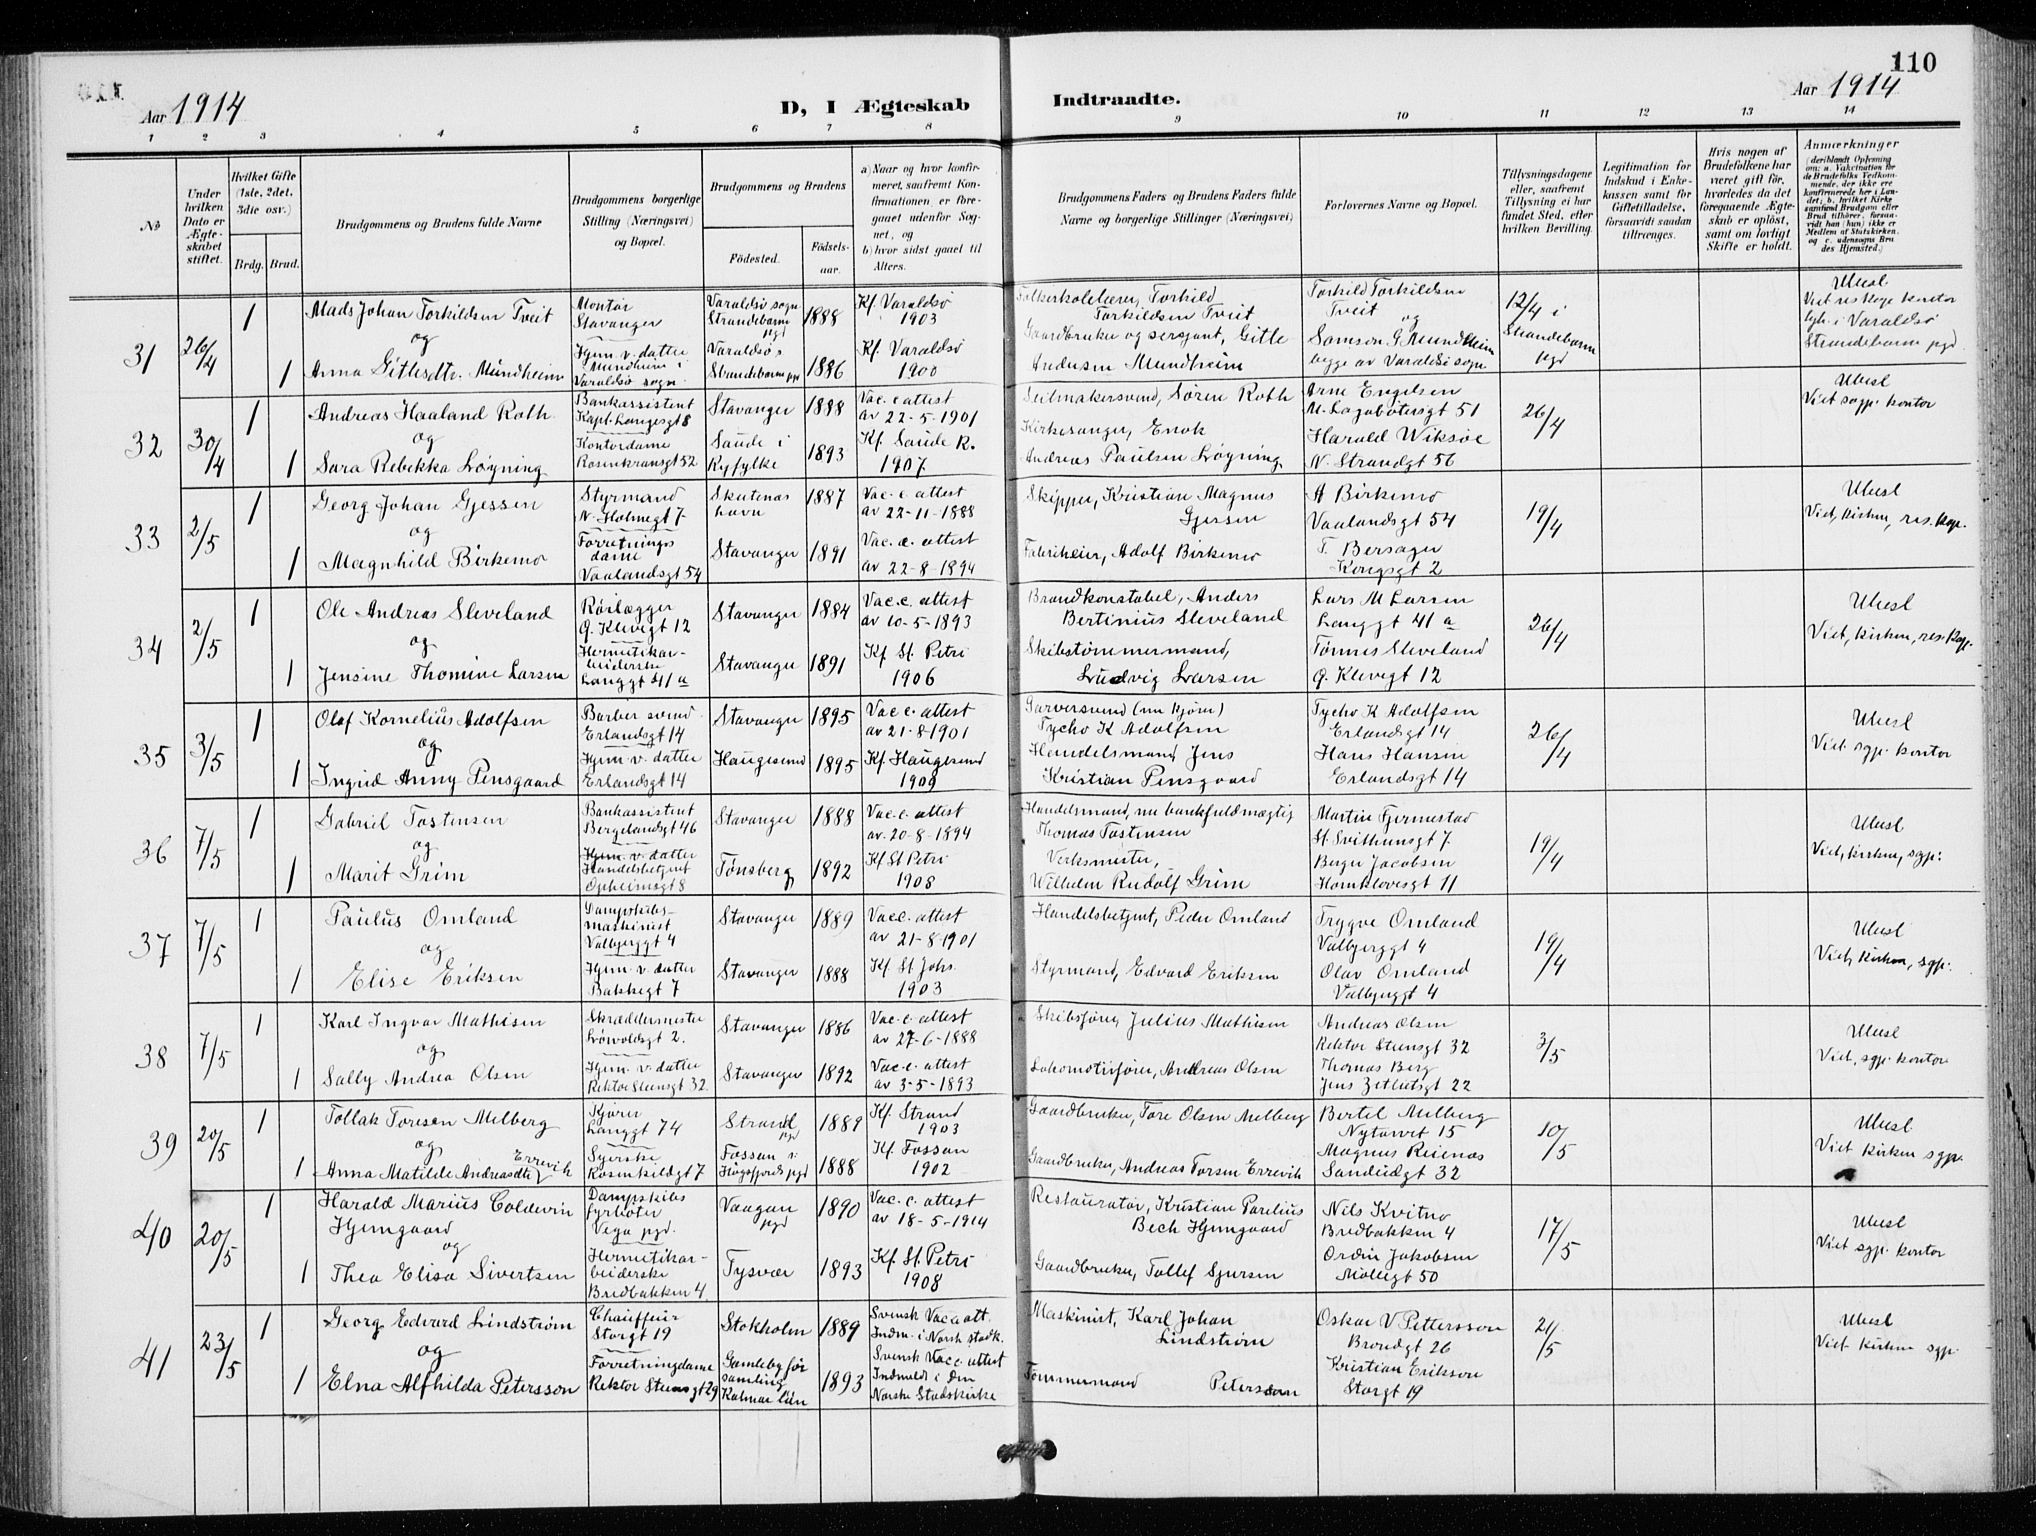 110
Aar 1914
D, I Ægteskab Indtraadte.
Aar 1914
1 2 3 4 5 6 7 8 9 10 11 12 13 14
No
Under hvilken Dato er Ægteskabet stiftet.
Hvilket Gifte (1ste, 2det, 3die osv.)
Brdg. Brud.
Brudgommens og Brudens fulde Navne
Brudgommens borgerlige Stilling (Næringsvei) og Bopæl.
Brudgommens og Brudens
Födested.
Födselsaar.
a) Naar og hvor konfirmeret, saafremt Konfirmationen er foregaaet udenfor Sognet, og
b) hvor sidst gaaet til Alters.
Brudgommens Faders og Brudens Faders fulde Navne og borgerlige Stillinger (Næringsvei)
Forlovernes Navne og Bopæl.
Tillysningsdagene eller, saafremt Tillysning ei har fundet Sted, efter hvilken Bevilling.
Legitimation for Indskud i Enkekassen samt for Giftetilladelse, forsaavidt saadan tiltrænges.
Hvis nogen af Brudefolkene har været gift før, hvorledes da det foregaaende Ægteskab er oplöst, samt om lovligt Skifte er holdt.
Anmærkninger
(deriblandt Oplysning om: a. Vakcination for de Brudefolks Vedkommende, der ikke ere konfirmerede her i Landet; b. hvilket Kirkesamfund Brudgom eller Brud tilhörer, forsaavidt han (hun) ikke er Medlem af Statskirken, og c. udensogns Brudes Hjemsted.)
31
26/4
1
Mads Johan Torkildsen Tveit
og
1
Anna Gitlesdtr. Mundheim
Montør
Stavanger
Hjem. v. datter
Mundheim i
Varaldsø sogn
Varaldsø sogn
Strandebarm pgd
1888
Varaldsø s
Strandebarm pgd
1886
Kf. Varaldsø
1903
Kf. Varaldsø
1900
Folkeskolelærer, Torkild
Torkildsen Tveit
Gaardbruker og sersjant, Gitle
Andersen Mundheim
Torkild Torkildsen
Tveit
og
Samson G Mundheim
begge av Varaldsø sogn
12/4 i
Strandebarm
pgd
Ubesl
Viet res kap. kontor
lyh. i Varaldsø
Strandebarm pgd
32
30/4
1
Andreas Haaland Roth
og
1
Sara Rebekka Løyning
Bankassistent
Kapt. Langesgt 8
Kontordame
Rosenkransgt 52
Stavanger
1888
Saude i
Ryfylke
1893
Vac. c attest
av 22-5-1901
Kf Saude R.
1907.
Seilmakersvend, Søren Roth
Kirkesanger, Enok
Andreas Paulsen Løyning
Arne Engelsen
M. Lagabøtersgt 51
Harald Wiksøe
N. Strandgt 56
26/4
Ubesl
Viet sogp. kontor
33
2/5
1
Georg Johan Gjessen
og
1
Magnhild Birkemo
Styrmand
N. Holmegt 7
Forretnings
dame
Vaalandsgt 54
Skutenes
havn
1887
Stavanger
1891
Vac. c. attest
av 22-11-1888
Vac. c. attest
av 22-8-1894
Skipper, Kristian Magnus
Gjessen
Fabrikeier, Adolf Birkemo
A Birkemo
Vaalandsgt 54
T. Bersager
Kongsgt 2
19/4
Ubesl
Viet, kirken, res. kap.
34
2/5
1
Ole Andreas Sleveland
og
1
Jensine Thomine Larsen
Rørlægger
Ø. Klevegt 12
Hermetikar-
beiderske
Langgt 41 a
Stavanger
1884
Stavanger
1891
Vac. c. attest
av 10-5-1893
Kf St. Petri
1906
Brandkonstabel, Anders
Bertinius Sleveland
Skibstømmermand,
Ludvig Larsen
Lars M Larsen
Langgt 41 a
Tønnes Sleveland
Ø. Klevegt 12
26/4
Ubesl
Viet, kirken, res. kap.
35
3/5
1
Olaf Kornelius Adolfsen
og
1
Ingrid Anny Pensgaard
Barber svend
Erlandsgt 14
Hjem. v. datter
Erlandsgt 14
Stavanger
1895
Haugesund
1895
Vac c. attest
av 21-8-1901
Kf Haugesund
1909
Garversvend (nu kjører)
Tycho K Adolfsen
Handelsmand, Jens
Kristian Pensgaard
Tycho K Adolfsen
Erlandsgt 14
Hans Hansen
Erlandsgt 14
26/4
Ubesl
Viet sgp. kontor
36
7/5
1
Gabriel Tostensen
og
1
Marit Grim
Bankassistent
Bergelandsgt 46
Hjem. v. datter
Handelsbetjent
Opheimsgt 8
Stavanger
1888
Tønsberg
1892
Vac. c attest
av. 20-8-1894
Kf St Petri
1908
Handelsmand, nu bankfuldmægtig
Thomas Tostensen
Verksmester,
Wilhelm Rudolf Grim
Martin Fjermestad
St. Svithunsgt 7
Berger Jacobsen
Hornklovesgt 11
19/4
Ubesl
Viet, kirken, sgp.
37
7/5
1
Paulus Omland
og
1
Elise Eriksen
Dampskibs-
maskinist
Valbjerggt 4
Hjem. v. datter
Bakkegt 7
Stavanger
1889
Stavanger
1888
Vac c. attest
av 21-8-1901
Kf. St Johs.
1903
Handelsbetjent, Peder Omland
Styrmand, Edvard Eriksen
Trygve Omland
Valbjerggt 4
Olav Omland
Valbjerggt 4
19/4
Ubesl
Viet, kirken, sgp.
38
7/5
1
Karl Ingvar Mathisen
og
1
Sally Andrea Olsen
Skræddermester
Løvoldsgt 2.
Hjem. v. datter
Rektor Steensgt 32
Stavanger
1886
Stavanger
1892
Vac. c. attest
av 27-6-1888
Vac. c. attest
av 3-5-1893
Skibsfører, Julius Mathisen
Lokomotivfører, Andreas Olsen
Andreas Olsen
Rektor Steensgt 32
Thomas Berg
Jens Zetlitsgt 22
3/5
Ubesl
Viet, sgp. kontor
39
20/5
1
Tollak Toresen Melberg
og
1
Anna Matilde Andreasdtr Errevik
Kjører
Langgt 74
Syerske
Rosenkildegt 7
Strand
pgd
1889
Fossan i
Høgsfjords pgd
1888
Kf. Strand
1903
Kf. Fossan
1902
Gaardbruker, Tore Olsen Melberg
Gaardbruker, Andreas Torsen Errevik
Bertel Melberg
Nytorvet 15
Magnus Reienes
Sandeidgt 32
10/5
Ubesl.
Viet kirken sgp.
40
20/5
1
Harald Marius Coldevin
Hjemgaard
og
1
Thea Elisa Sivertsen
Dampskibs
fyrbøter
Vega pgd.
Hermetikar-
beiderske
Bredbakken 4
Vaagan
pgd
1890
Tysvær
1893
Vac. c. attest
av 18-5-1914
Kf. St. Petri
1908
Restauratør, Kristian Parelius
Bech Hjemgaard
Gaardbruker, Tollef Sjursen
Nils Kvitno
Bredbakken 4
Ordin Jakobsen
Møllegt 50
17/5
Ubesl
Viet sgp. kontor
41
23/5
1
Georg Edvard Lindstrøm
og
1
Elna Alfhilda Petersson
Chauffeur
Storgt 19
Forretningdame
Rektor Steensgt 29
Stokholm
1889
Gamleby før
samling
Kalmar län
1893
Svensk Vac c att.
Indm. i Norsk stadk.
Svensk Vac c. attest
Indmeldt i den
Norske Stadskirke
Maskinist, Karl Johan
Lindstrøm
Tømmermand Petersson
Oskar V Pettersson
Bredgt 26
Kristian Erikson
Storgt 19
21/5
Ubesl
Viet kirken sgp.